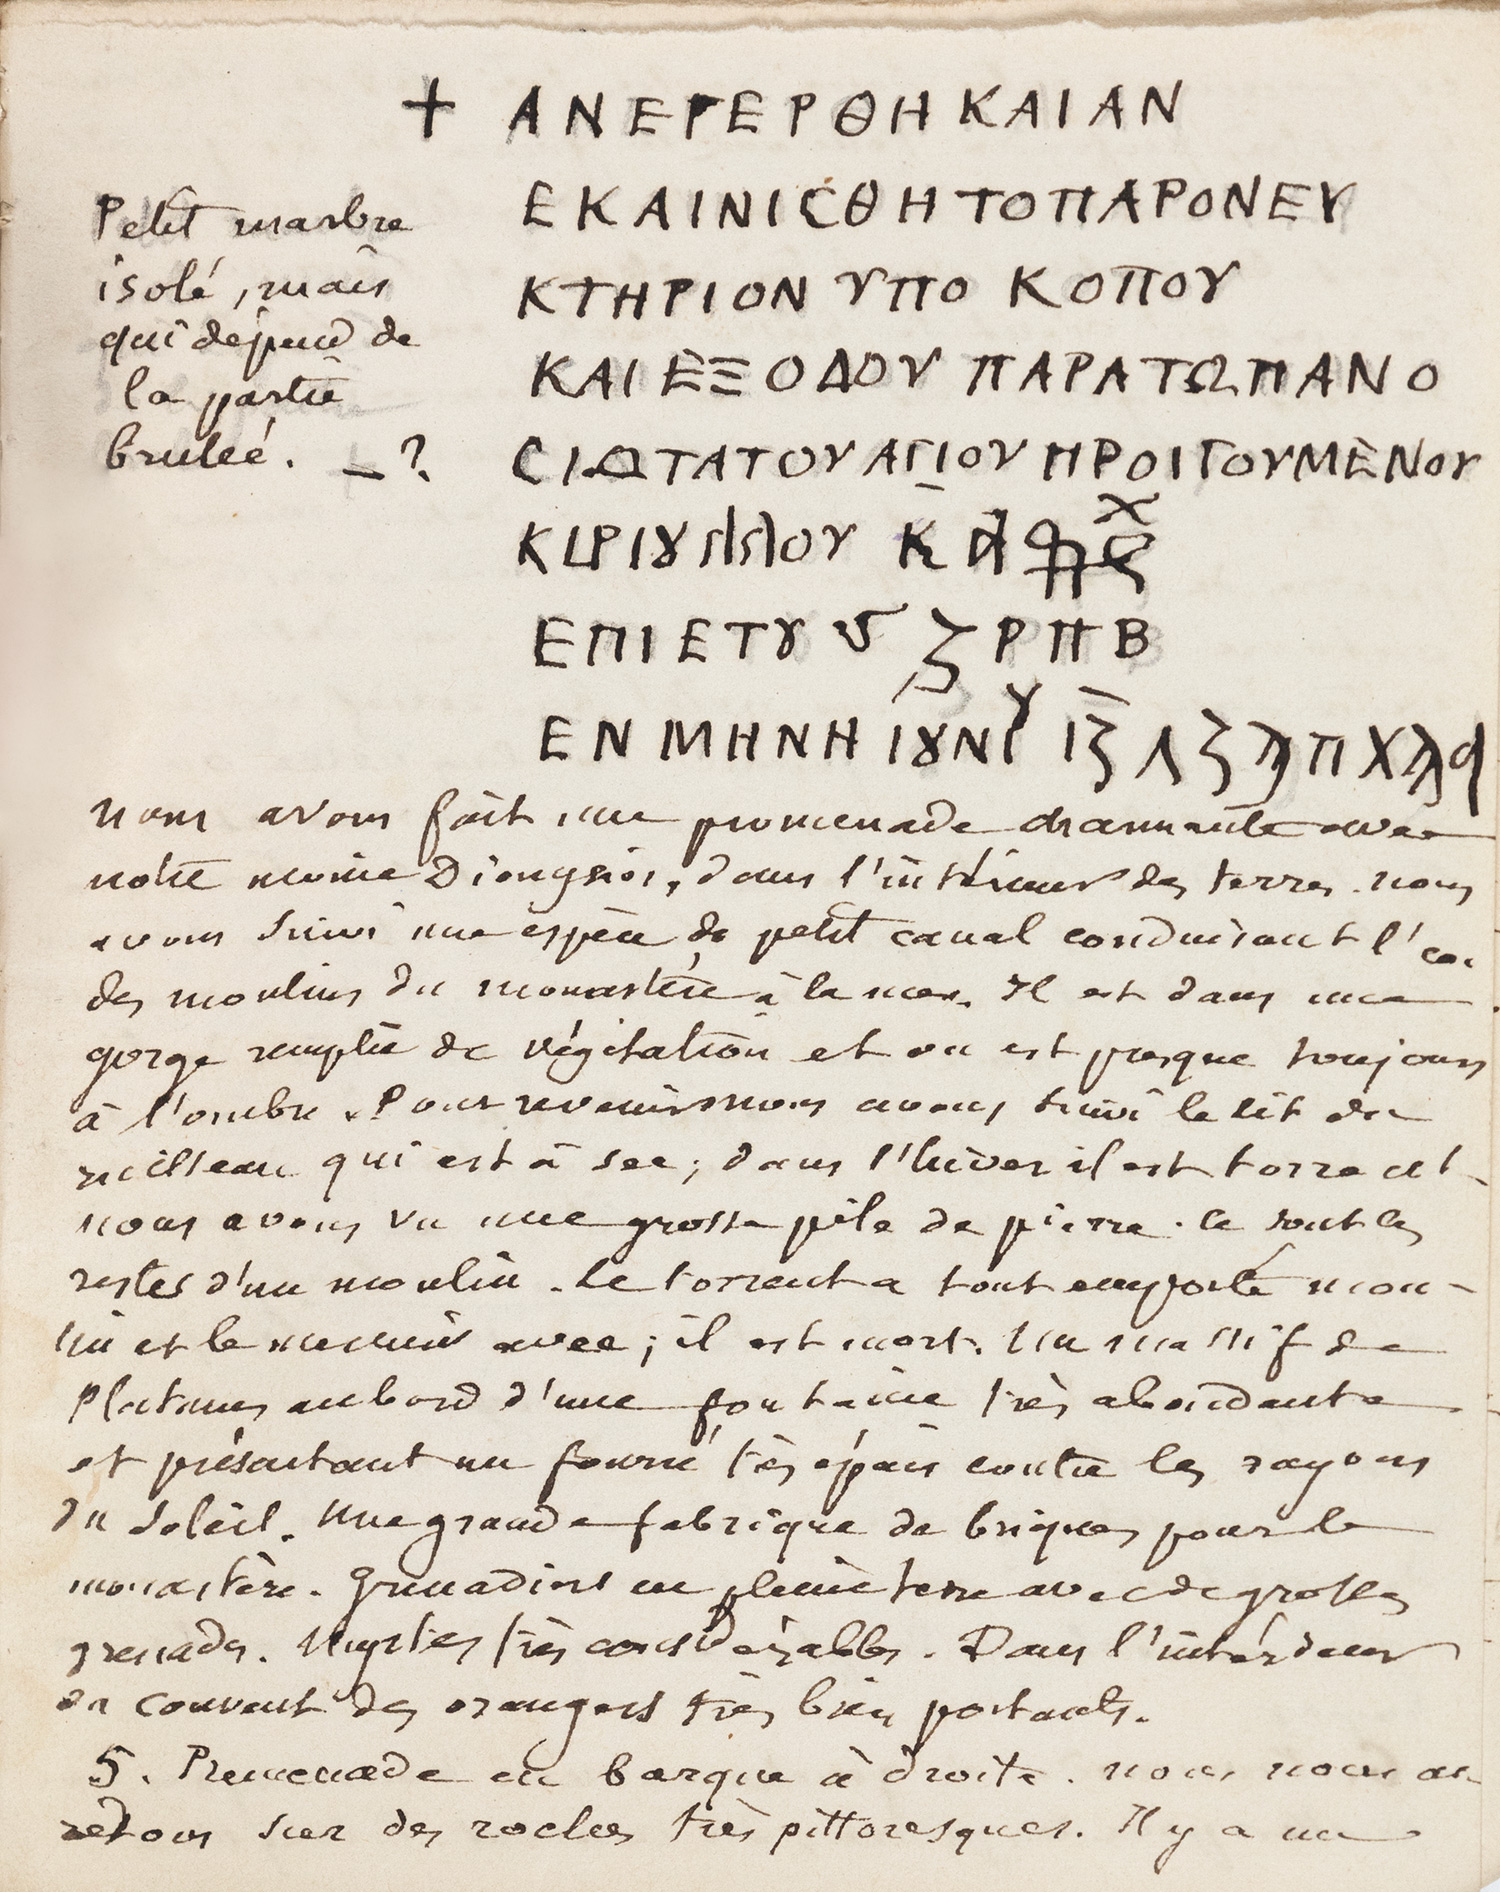 + ΑΝΕΓΕΡΘΗ ΚΑΙ ΑΝ
ΕΚΑΙΝΙϹΘΗ ΤΟ ΠΑΡΟΝ ΕΥ
ΚΤΗΡΙΟΝ ΥΠΟ ΚΟΠΟΥ
ΚΑΙ ΕΞΟΔΟΥ ΠΑΡΑ ΤΩ ΠΑΝΟ
ϹΙΩΤΑΤΟΥ ΑΓΙΟΥ ΠΡΟΙΓΟΥΜΕΝΟΥ
ΕΠΙ ΕΤȢ ϛ ΖΡΠΒ
ΕΝ ΜΗΝΗ ΙȢΝΙ
Petit marbre
isolé, mais
qui dépend de
la partie
brulée. – ?
nous avons fait une promenade charmante avec
notre moine Dionysios, dans l'intérieur des terres. nous
avons suivi une espèce de petit canal conduisant l'
des moulins du monastère à la mer. Il est dans une
gorge remplie de végétation et on est presque toujours
à l'ombre. Pour revenir nous avons suivi le lit du
ruisseau qui est à sec; dans l'hiver il est torrent.
nous avons vu une grosse pile de pierre. ce sont les
restes d'un moulin. Le torrent a tout emporté mou-
lin et le meunier avec; il est mort. Un massif de
Platanes au bord d'une fontaine très abondante
et présentant un fourré très épais contre les rayons
du soleil. Une grande fabrique de briques pour le
monastère. Grenadiers en pleine terre avec de grosses
grenades. Myrtes très considérables. Dans l'intérieur
du couvent des orangers très bien portants.
5. Promenade en barque à droite. nous nous ar
retons sur des roches très pittoresques. Il y a un